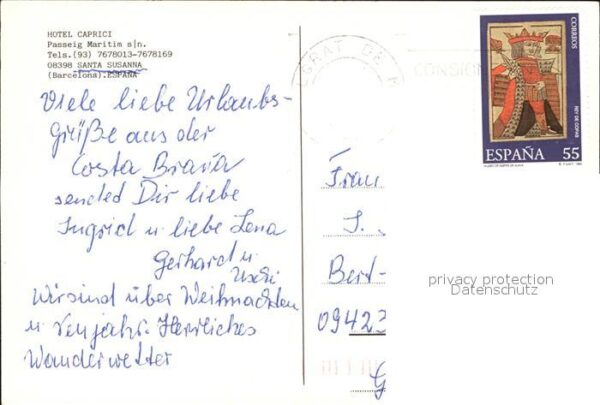 HOTEL CAPRICI
Passeig Marítim s/n.
Tels.(93) 7678013-7678169
08398 SANTA SUSANNA
(Barcelona).ESPAÑA
Viele liebe Urlaubs-
grüße aus der
Costa Brava
sendet Dir liebe
Ingrid u liebe Lena
Gerhard u
Uschi
Wir sind über Weihnachten
u Neujahr. Herrliches
Wanderwetter
GRAT DE
CONSIGN
CORREOS
REY DE COPAS
ESPAÑA 55
Frau
I.
Bert-
09423
G
privacy protection
Datenschutz